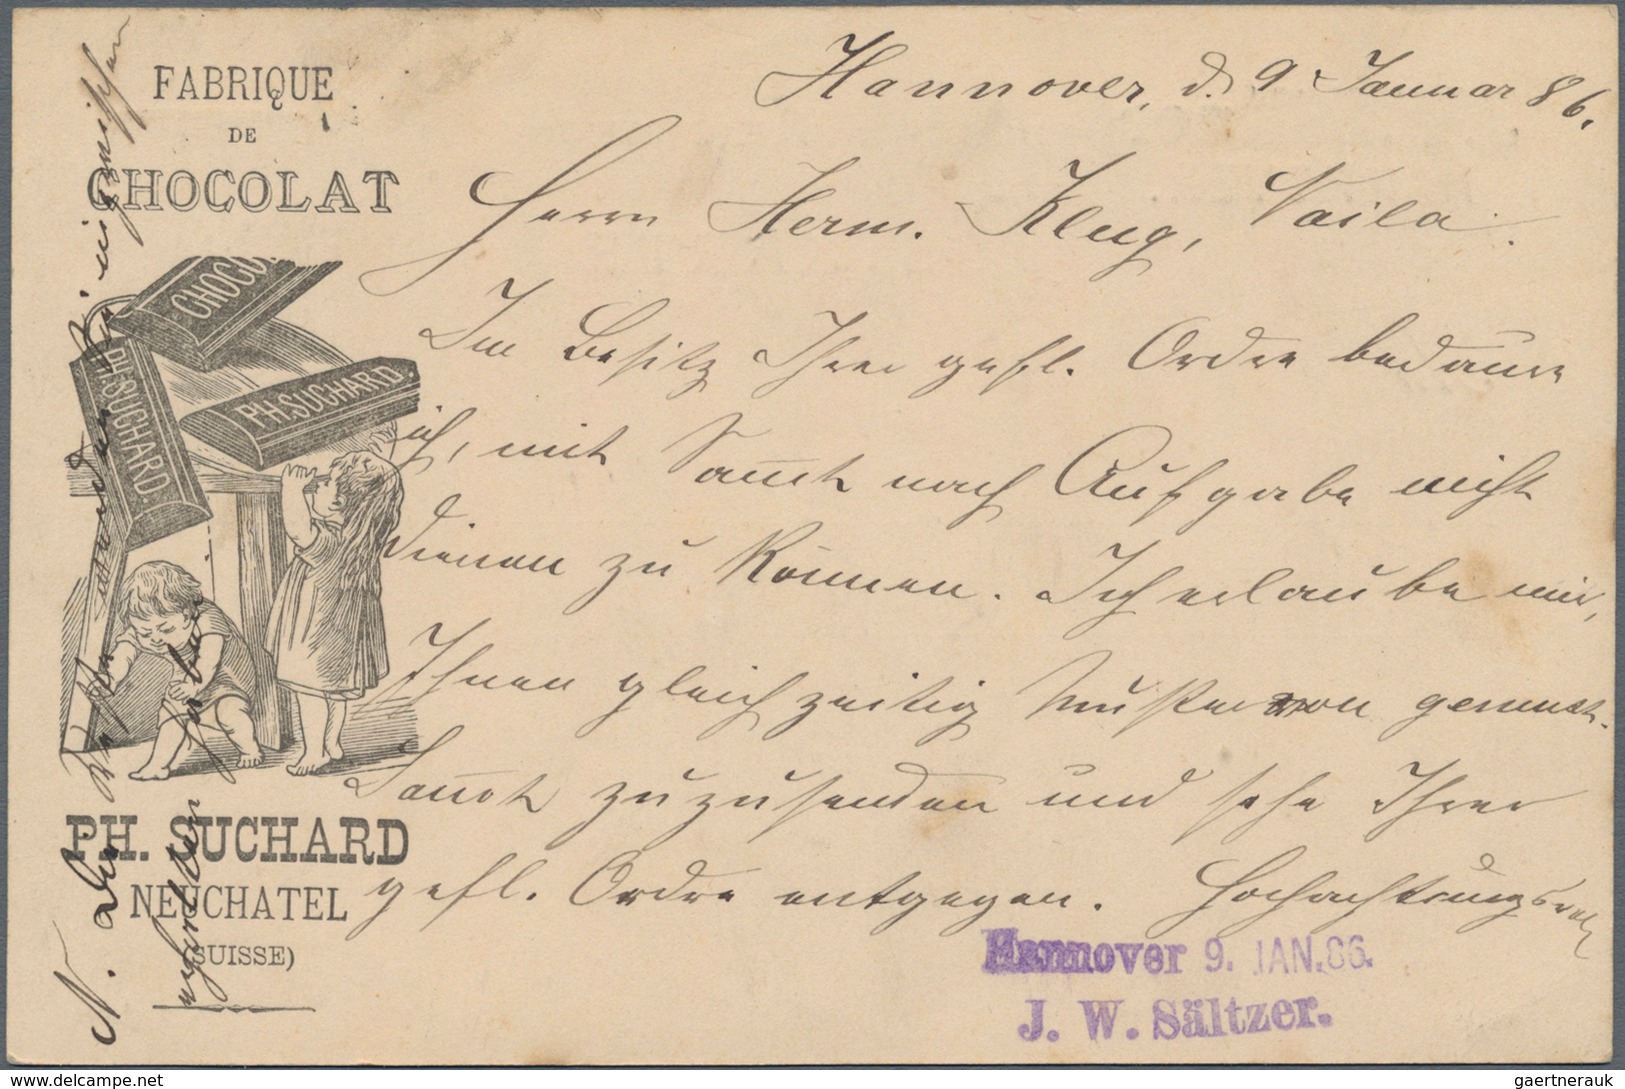 FABRIQUE
DE
CHOCOLAT
CHOCO
PH. SUCHARD.
PH. SUCHARD
PH. SUCHARD
NEUCHATEL
(SUISSE)
Hannover, d. 9 Januar 86.
Herrn Herm. Klug, Vaila.
Im Besitz Ihrer gefl. Ordre bedaure
ich, mit Samt nach Aufgabe nicht
dienen zu können. Ich erlaube mir,
Ihnen gleichzeitig Muster von gemust.
Samt zuzusenden und sehe Ihrer
gefl. Ordre entgegen. Hochachtungsvoll
Hannover 9. JAN. 86.
J. W. Sältzer.
delcampe.net
gaertnerauk